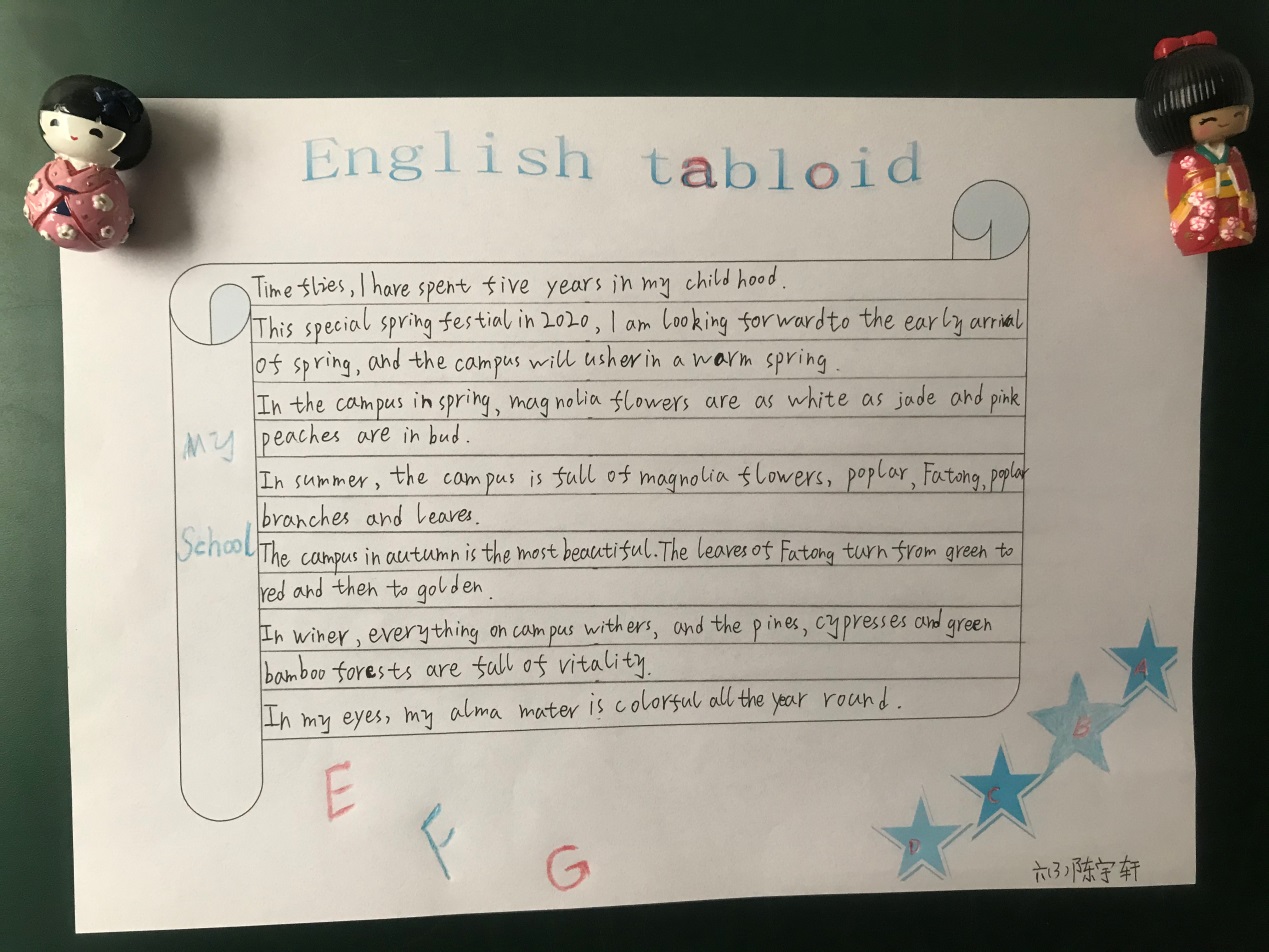 English tabloid
Time flies, I have spent five years in my childhood.
This special spring festial in 2020, I am looking forward to the early arrival
of spring, and the campus will usher in a warm spring.
In the campus in spring, magnolia flowers are as white as jade and pink
peaches are in bud.
In summer, the campus is full of magnolia flowers, poplar, Fatong, poplar
branches and leaves.
The campus in autumn is the most beautiful. The leaves of Fatong turn from green to
red and then to golden.
In winer, everything on campus withers, and the pines, cypresses and green
bamboo forests are full of vitality.
In my eyes, my alma mater is colorful all the year round.
My
School
A
B
C
D
E
F
G
六(3)陈宇轩